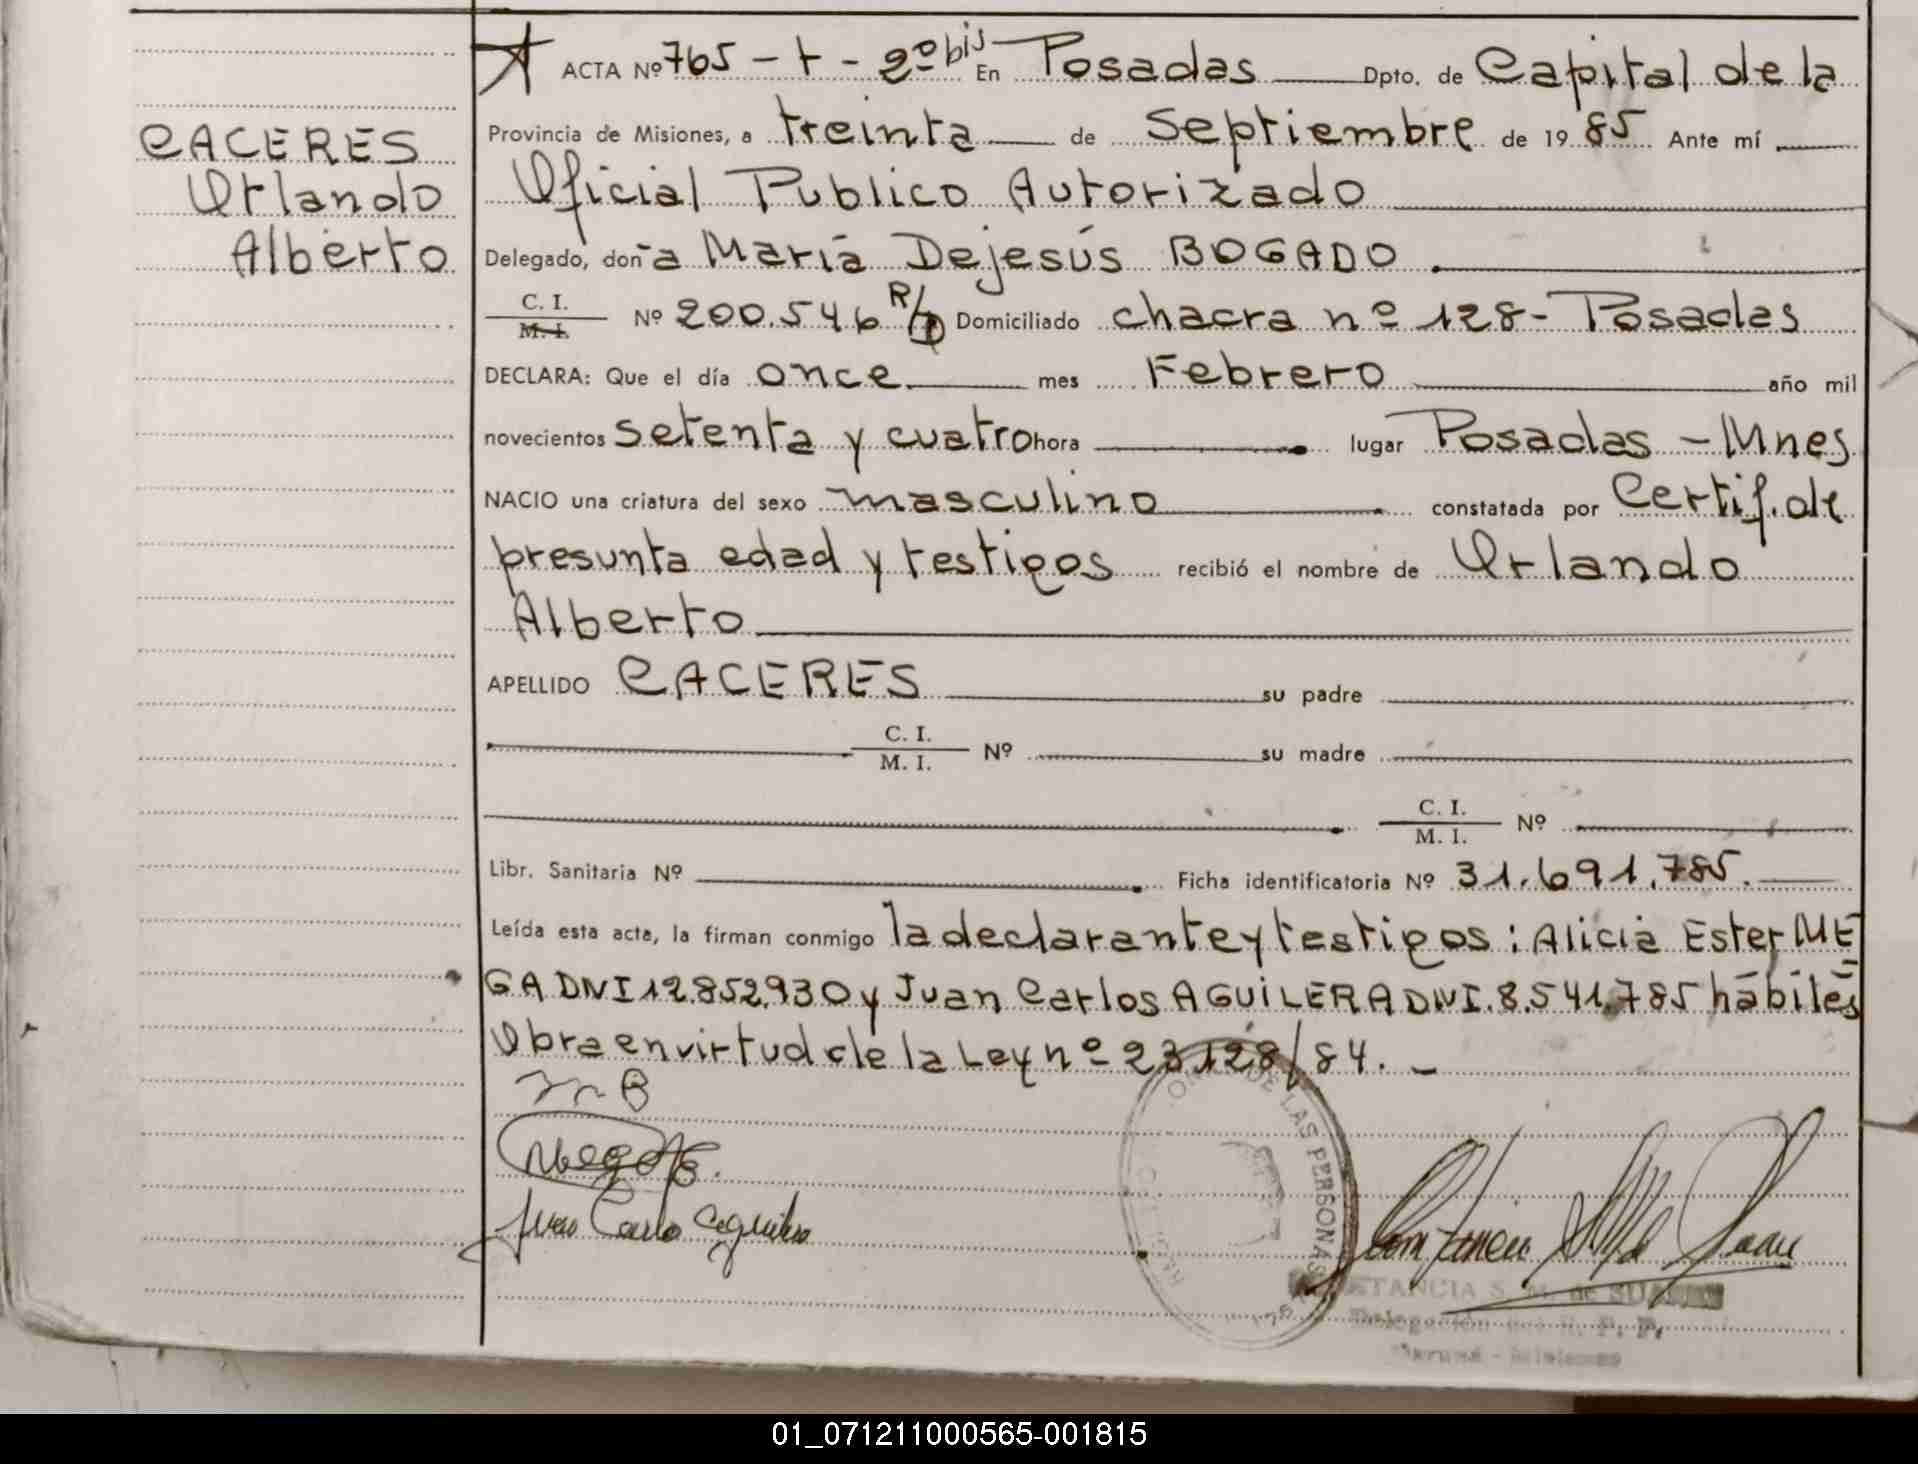 ACTA Nº 765 - t - 2º bis En Posadas Dpto. de Capital de la
CACERES
Orlando
Alberto
Provincia de Misiones, a treinta de Septiembre de 1985 Ante mí
Oficial Publico Autorizado
Delegado, doña María Dejesús BOGADO
C. I.
M. I.
Nº 200.546 R/P Domiciliado chacra nº 128 - Posadas
DECLARA: Que el día once mes Febrero año mil
novecientos setenta y cuatro hora lugar Posadas - Mnes
NACIO una criatura del sexo masculino constatada por Certif. de
presunta edad y testigos recibió el nombre de Orlando
Alberto
APELLIDO CACERES su padre
C. I.
M. I. Nº su madre
C. I.
M. I. Nº
Libr. Sanitaria Nº Ficha identificatoria Nº 31.691.785.
Leída esta acta, la firman conmigo la declarante y testigos: Alicia Ester ME
GA DNI 12.852.930 y Juan Carlos AGUILERA DNI. 8.541.785 hábiles
Obra en virtud de la Ley nº 23128/84. -
m B
Juan Carlo Aguilera
DE LAS PERSONAS
STANCIA S. M. de
Delegación R. P. P.
- Misiones
01_071211000565-001815